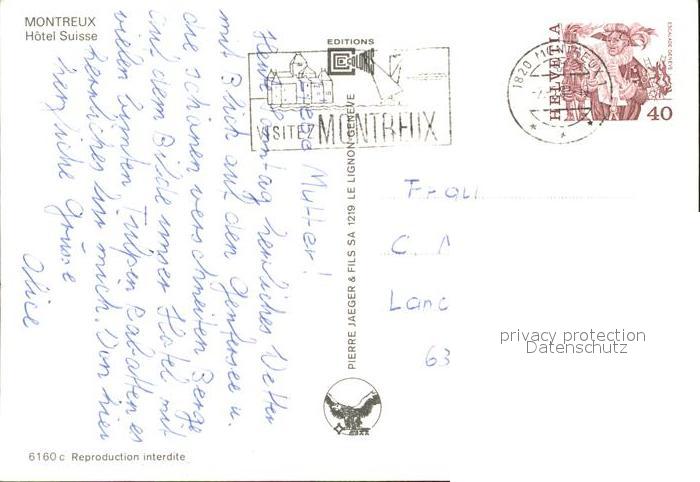 MONTREUX
Hôtel Suisse
EDITIONS
VISITEZ MONTREUX
1820 MONTREUX
HELVETIA
ESCALADE GENÈVE
40
Liebe Mutter!
Heute Sonntag herrliches Wetter
mit Blick auf den Genfersee u.
die schönen verschneiten Berge
auf dem Bilde unser Hotel mit
vielen bunten Tulpen Rabatten es
herrliches für mich. Von hier
herzliche Grüsse
Alice
PIERRE JAEGER & FILS SA 1219 LE LIGNON-GENÈVE
Frau
C.
Lanc
63
privacy protection
Datenschutz
6160 c Reproduction interdite